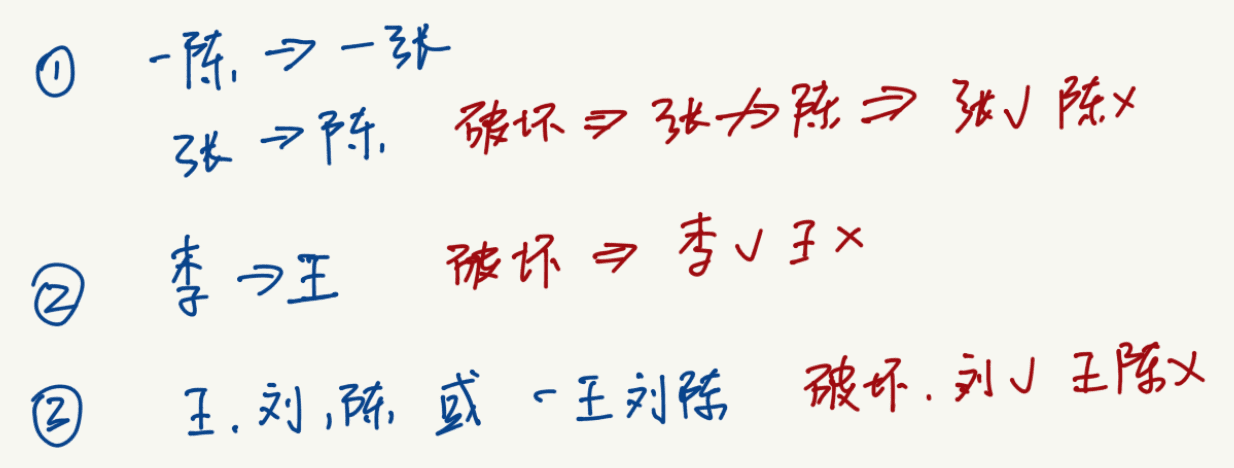 ① -陈 → -张
张 → 陈 破坏 ⇒ 张 ↛ 陈 ⇒ 张√ 陈×
② 李 → 王 破坏 ⇒ 李√ 王×
② 王.刘,陈, 或 -王刘陈 破坏.刘√ 王陈×